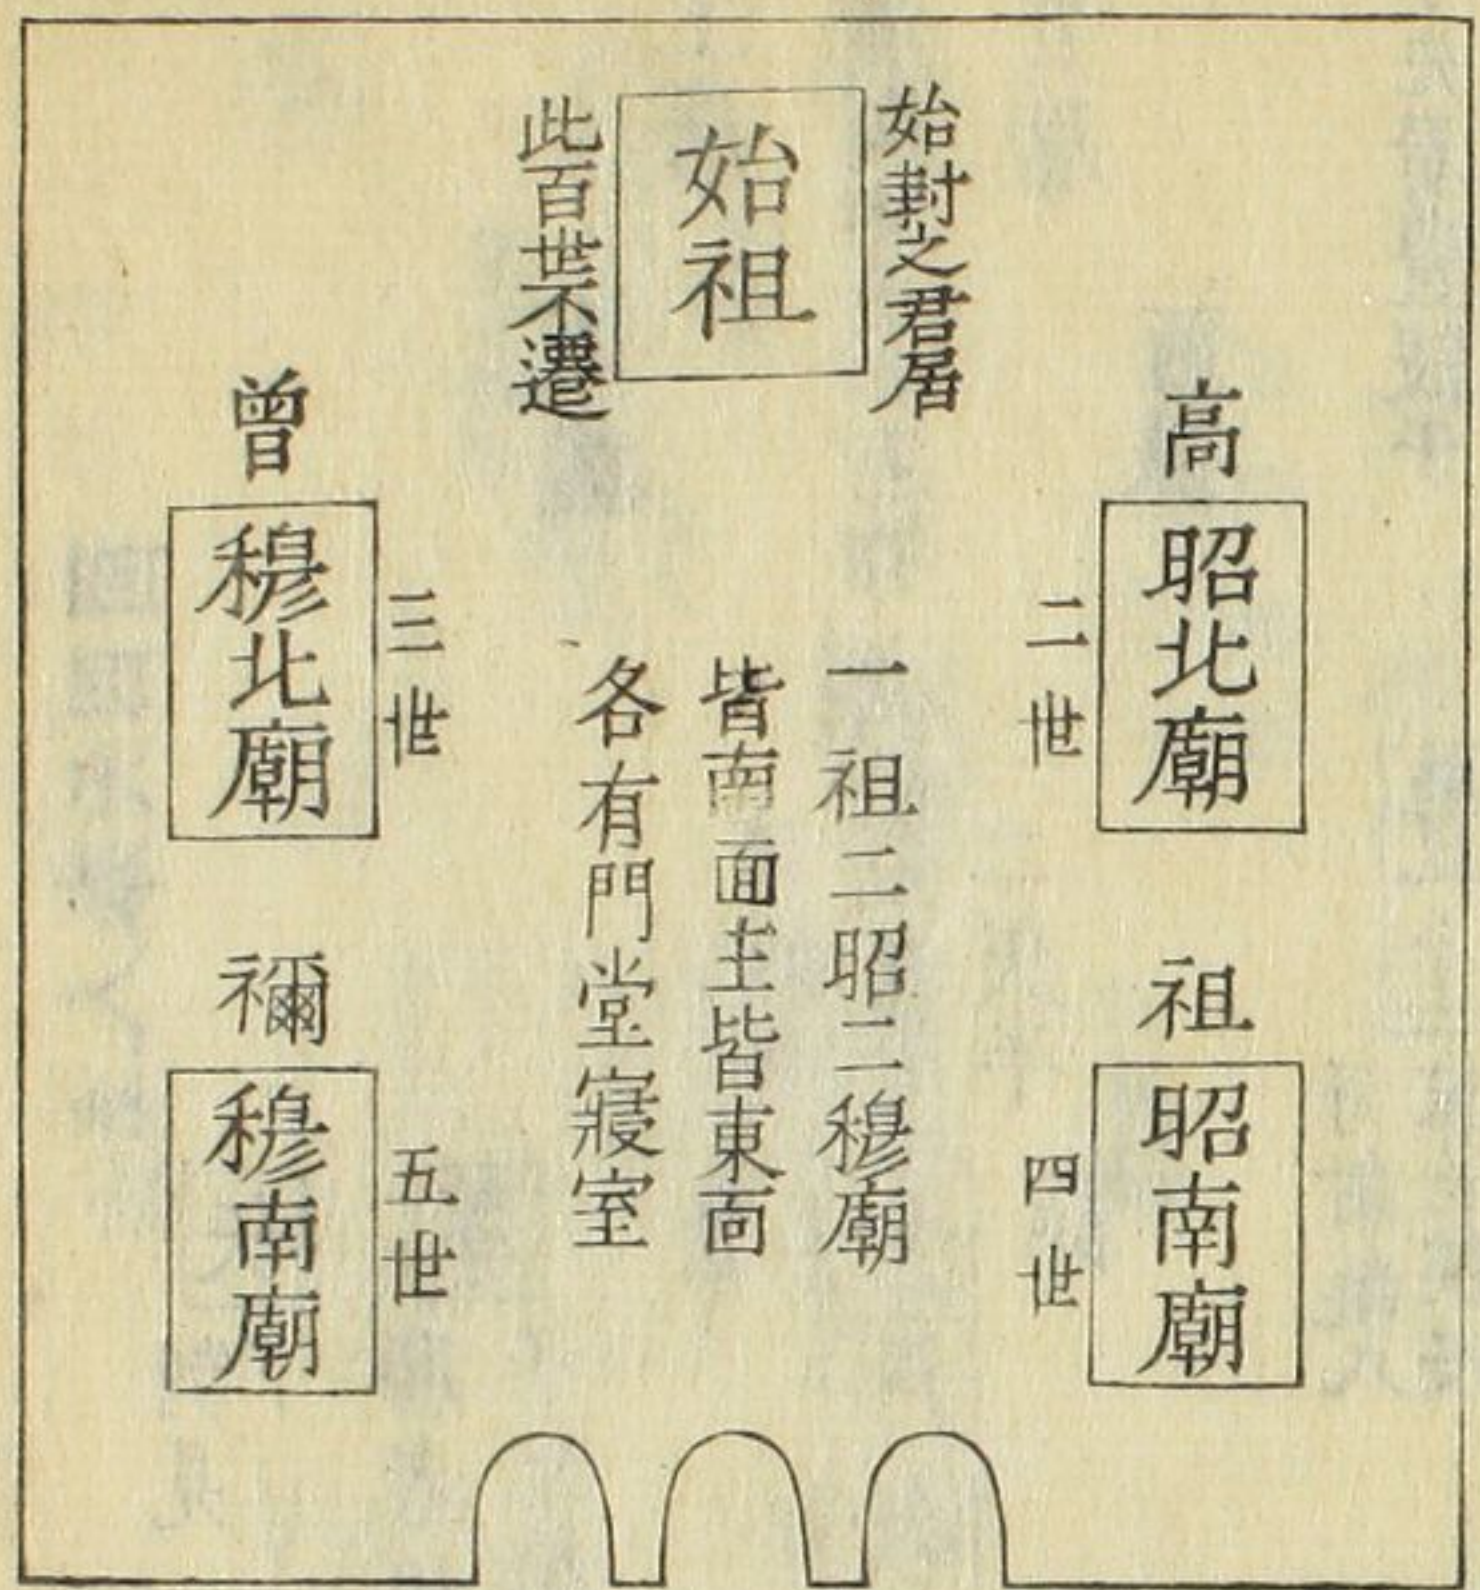 始封之君居
始祖
此百世不遷
高
昭北廟
二世
曾
穆北廟
三世
一祖二昭二穆廟
皆南面主皆東面
各有門堂寢室
祖
昭南廟
四世
禰
穆南廟
五世